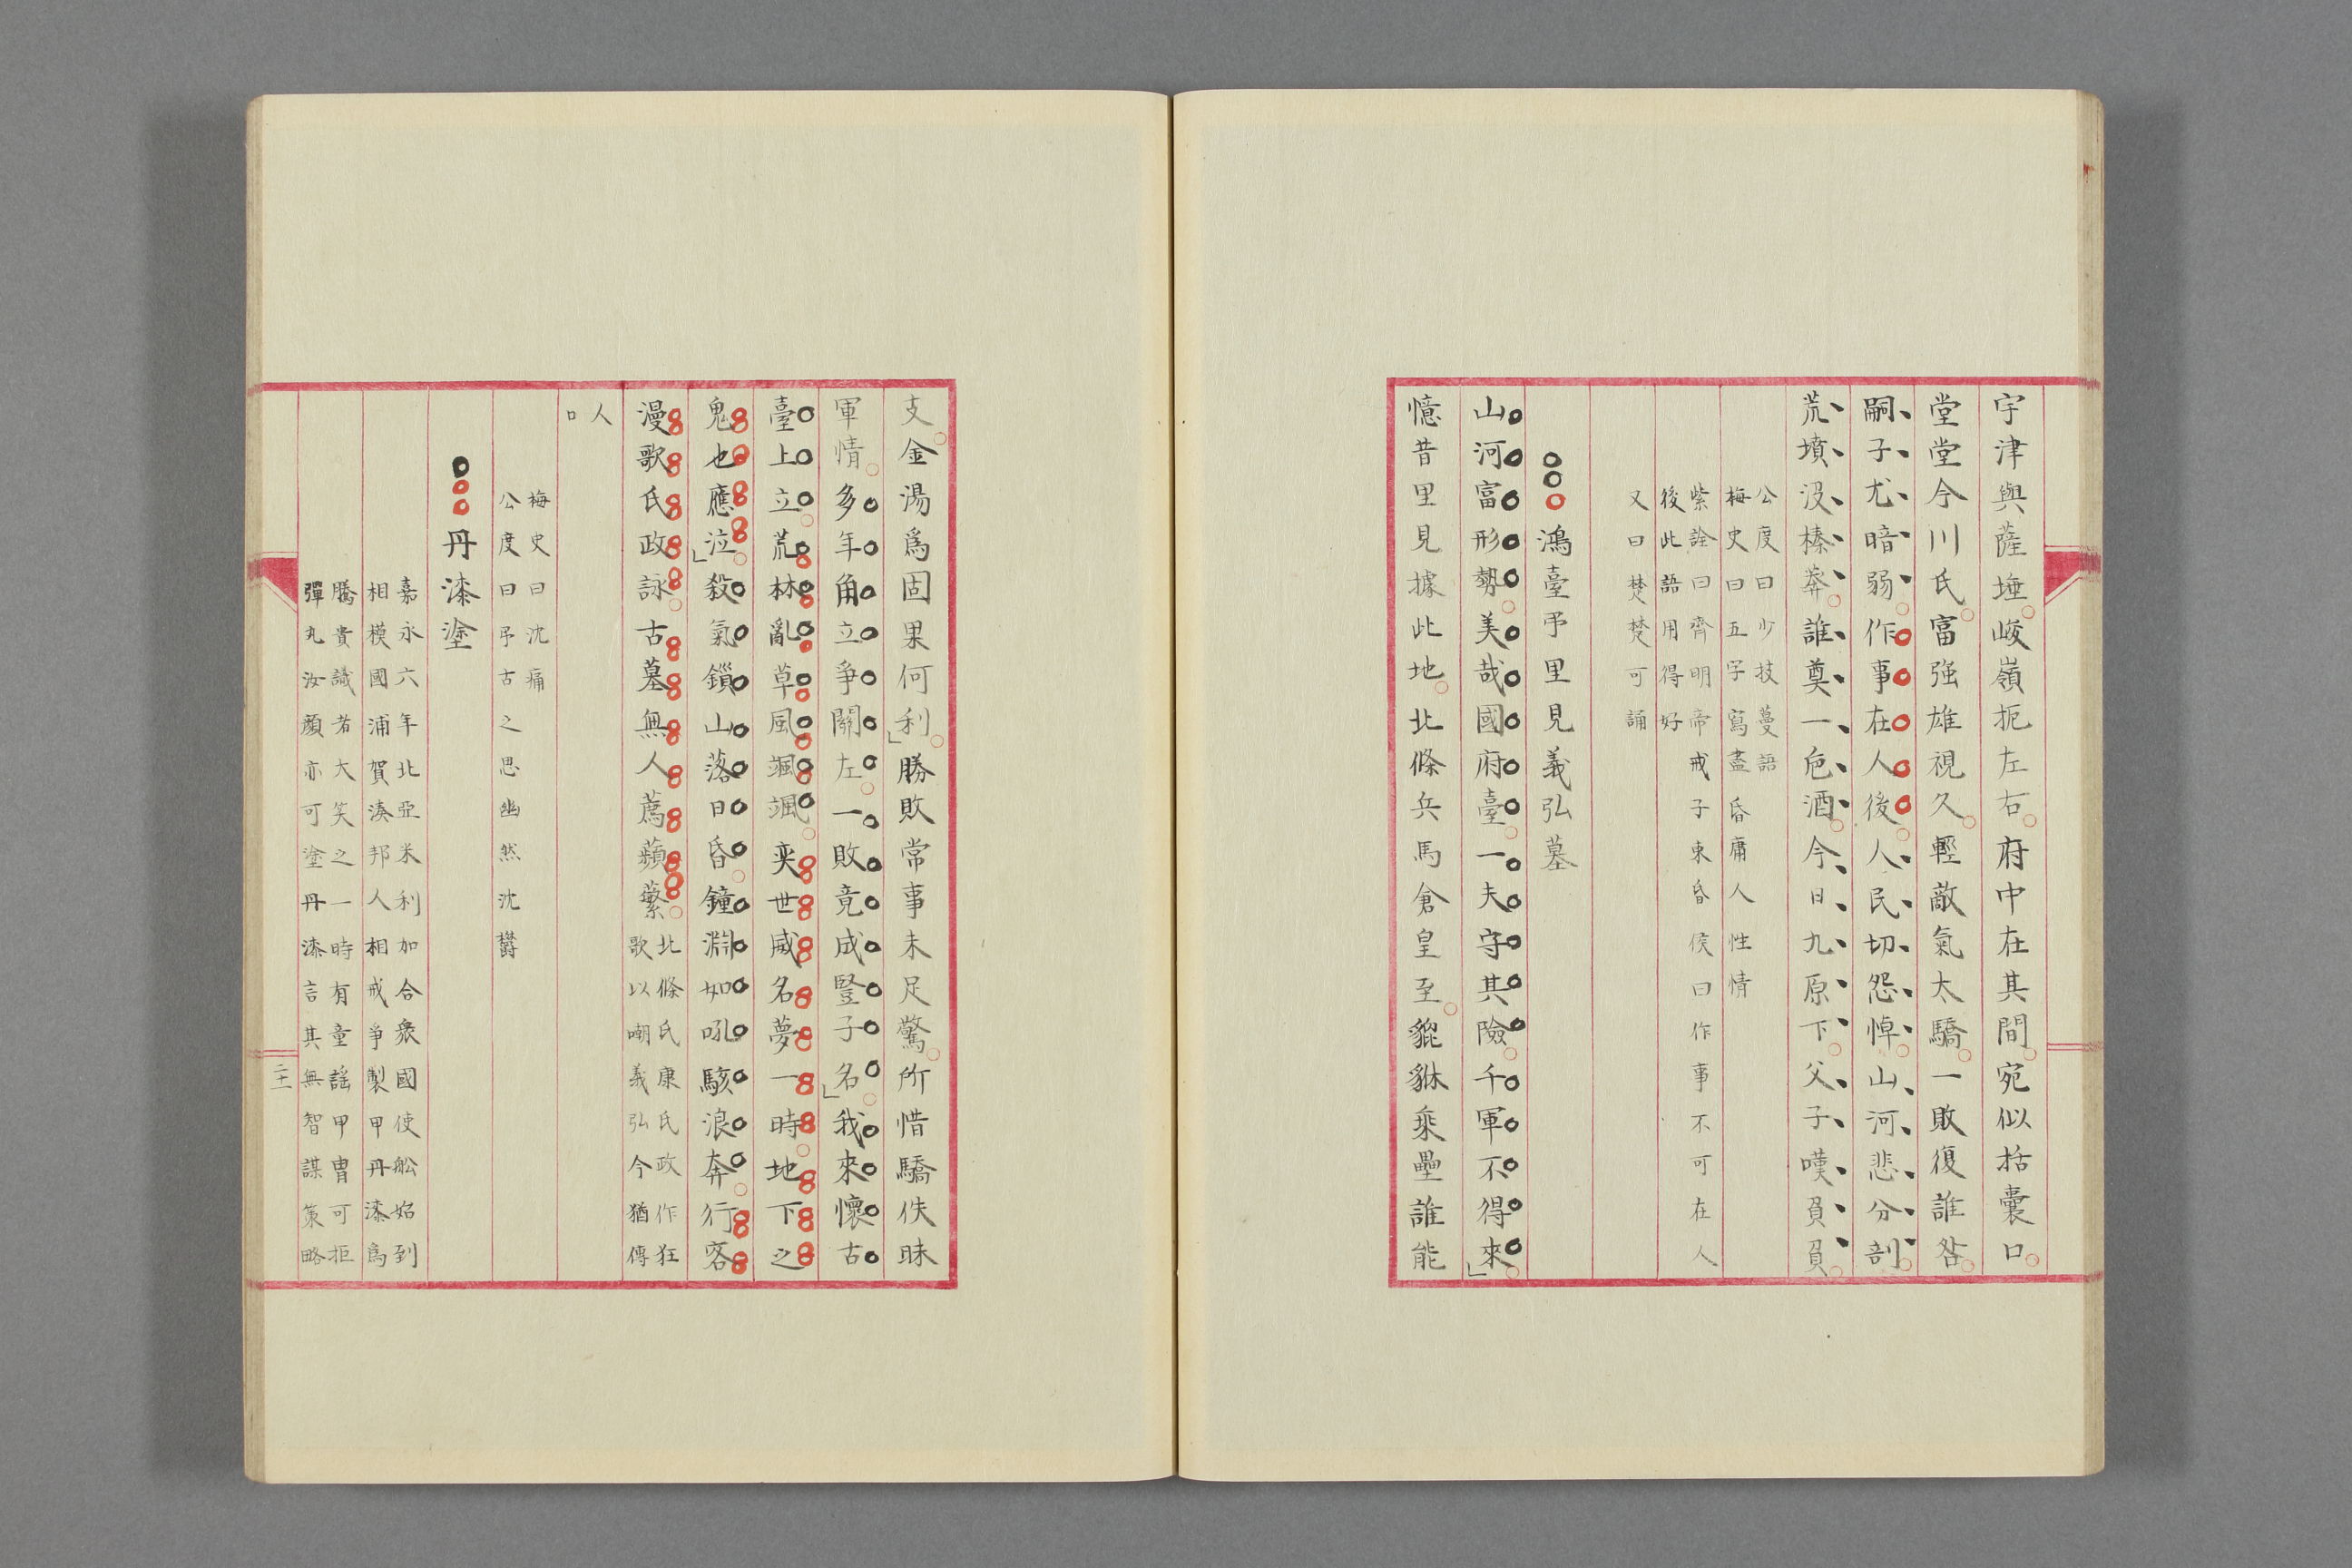 宇津與薩埵峻嶺扼左右府中在其間宛似括囊口
堂堂今川氏富强雄視久輕敵氣太驕一敗復誰咎
嗣子尤暗弱作事在人後人民切怨悼山河悲分剖
荒墳没榛莽誰奠一卮酒今日九原下父子嘆負負
公度曰少技蔓語
梅史曰五字寫盡昏庸人性情
紫詮曰齊明帝戒子東昏侯曰作事不可在人
後此語用得好
又曰楚楚可誦
鴻臺弔里見義弘墓
山河富形勢美哉國府臺一夫守其險千軍不得來
憶昔里見據此地北條兵馬倉皇至貔貅乘壘誰能
支金湯爲固果何利勝敗常事未足驚所惜驕佚昧
軍情多年角立爭關左一敗竟成豎子名我來懷古
臺上立荒林亂草風颯颯奕世威名夢一時地下之
鬼也應泣殺氣鎖山落日昏鐘淵如吼駭浪奔行客
漫歌氏政詠古墓無人薦蘋蘩
北條氏康氏政作狂
歌以嘲義弘今猶傳
人
口
梅史曰沈痛
公度曰弔古之思幽然沈鬱
丹漆塗
嘉永六年北亞米利加合衆國使舩始到
相模國浦賀湊邦人相戒爭製甲丹漆爲
騰貴識者大笑之一時有童謡甲冑可拒
彈丸汝顏亦可塗丹漆言其無智謀策略
二十一